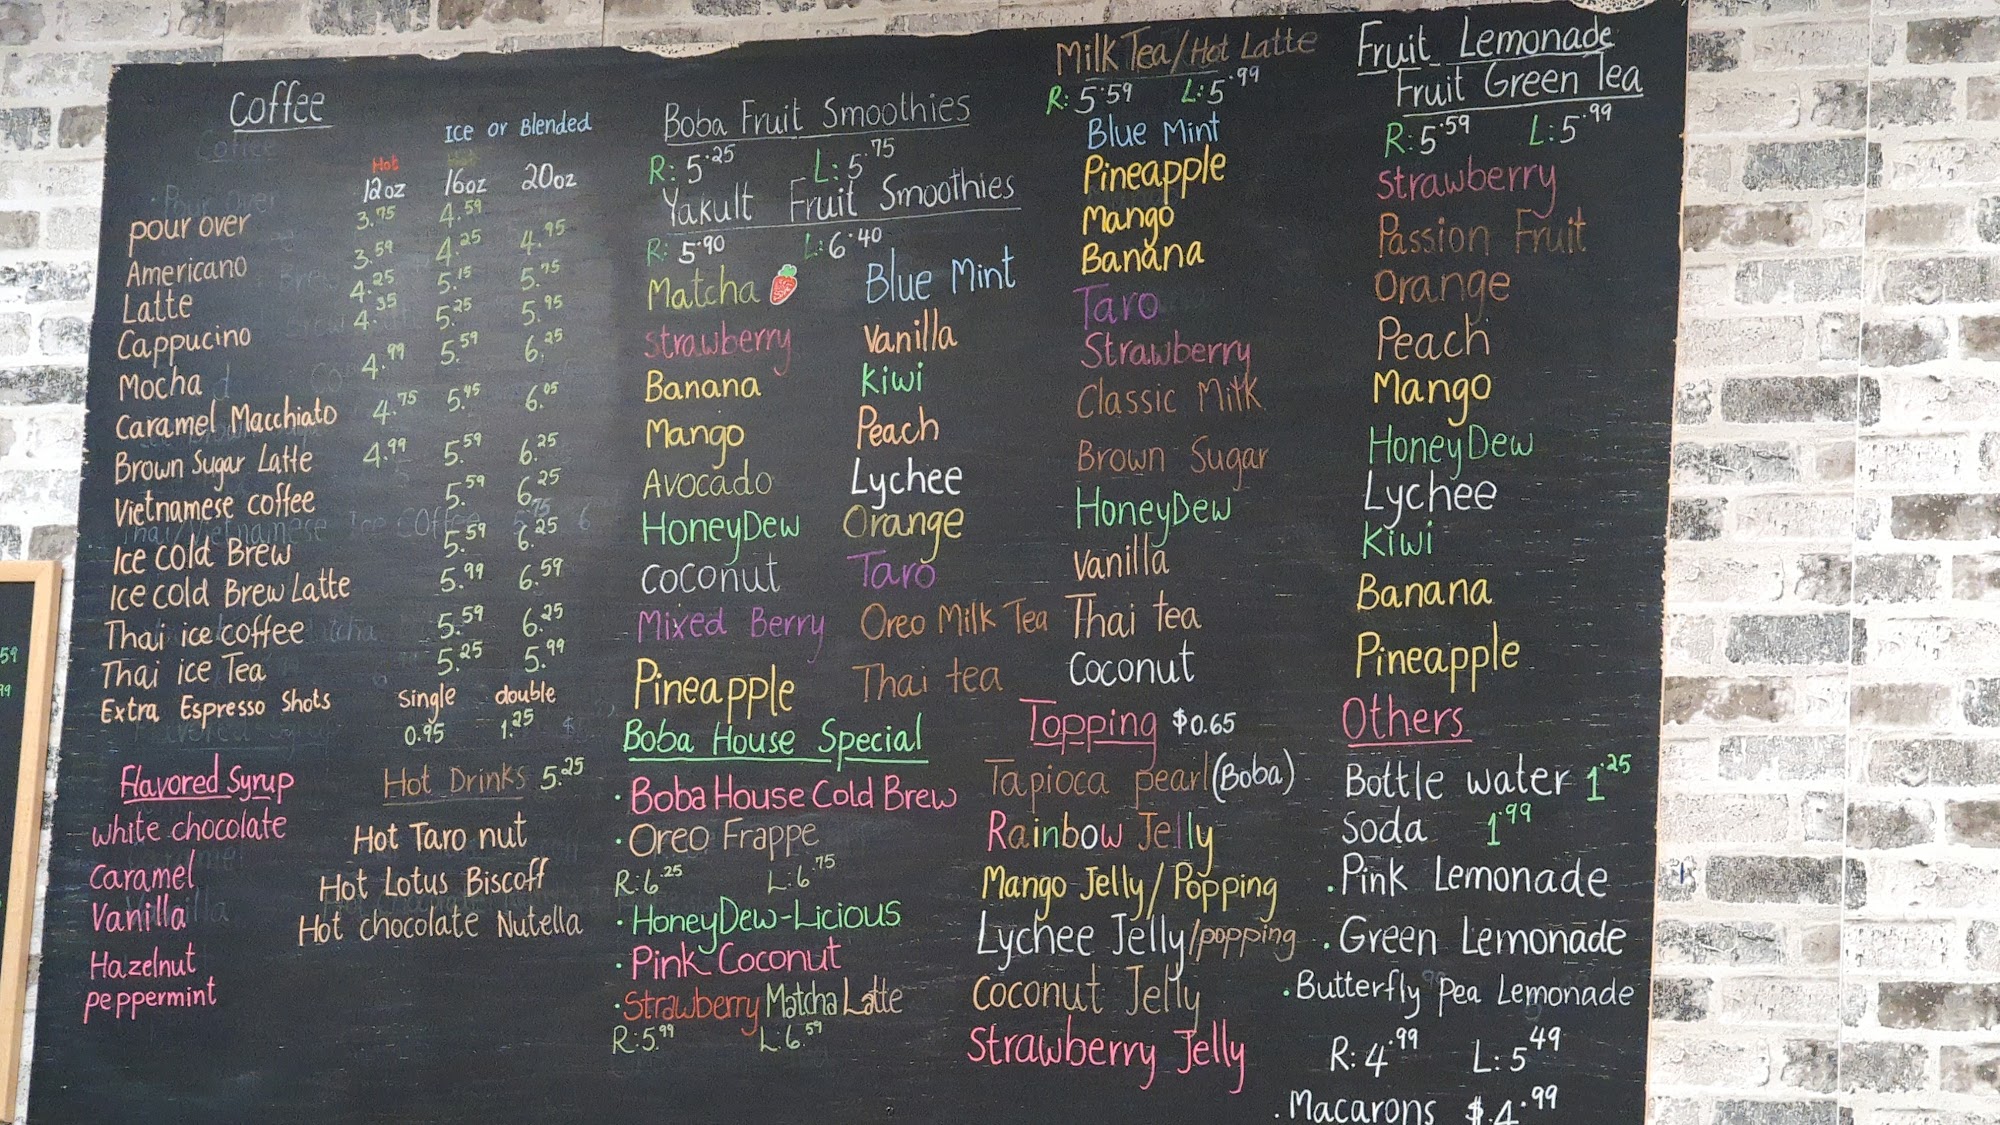 Coffee
Ice or Blended
Hot
12oz 16oz 20oz
pour over 3.75 4.59
Americano 3.59 4.25 4.95
Latte 4.25 5.15 5.75
Cappucino 4.35 5.25 5.95
Mocha 4.99 5.59 6.25
Caramel Macchiato 4.75 5.45 6.05
Brown Sugar Latte 4.99 5.59 6.25
Vietnamese coffee 5.59 6.25
Ice cold Brew 5.59 6.25
Ice cold Brew Latte 5.99 6.59
Thai ice coffee 5.59 6.25
Thai ice Tea 5.25 5.99
Extra Espresso Shots single double
0.95 1.25
Flavored Syrup
white chocolate
Caramel
Vanilla
Hazelnut
peppermint
Hot Drinks 5.25
Hot Taro nut
Hot Lotus Biscoff
Hot chocolate Nutella
Boba Fruit Smoothies
R: 5.25 L: 5.75
Yakult Fruit Smoothies
R: 5.90 L: 6.40
Matcha Blue Mint
strawberry Vanilla
Banana Kiwi
Mango Peach
Avocado Lychee
HoneyDew Orange
Coconut Taro
Mixed Berry Oreo Milk Tea
Pineapple Thai tea
Boba House Special
· Boba House Cold Brew
· Oreo Frappe
R: 6.25 L: 6.75
· HoneyDew-Licious
· Pink Coconut
· Strawberry Matcha Latte
R: 5.99 L: 6.59
Milk Tea/Hot Latte
R: 5.59 L: 5.99
Blue Mint
Pineapple
Mango
Banana
Taro
Strawberry
Classic Milk
Brown Sugar
HoneyDew
Vanilla
Thai tea
Coconut
Topping $0.65
Tapioca pearl (Boba)
Rainbow Jelly
Mango Jelly/Popping
Lychee Jelly/popping
Coconut Jelly
Strawberry Jelly
Fruit Lemonade
Fruit Green Tea
R: 5.59 L: 5.99
strawberry
Passion Fruit
Orange
Peach
Mango
HoneyDew
Lychee
Kiwi
Banana
Pineapple
Others
Bottle water 1.25
Soda 1.99
. Pink Lemonade
. Green Lemonade
. Butterfly Pea Lemonade
R: 4.99 L: 5.49
. Macarons $4.99